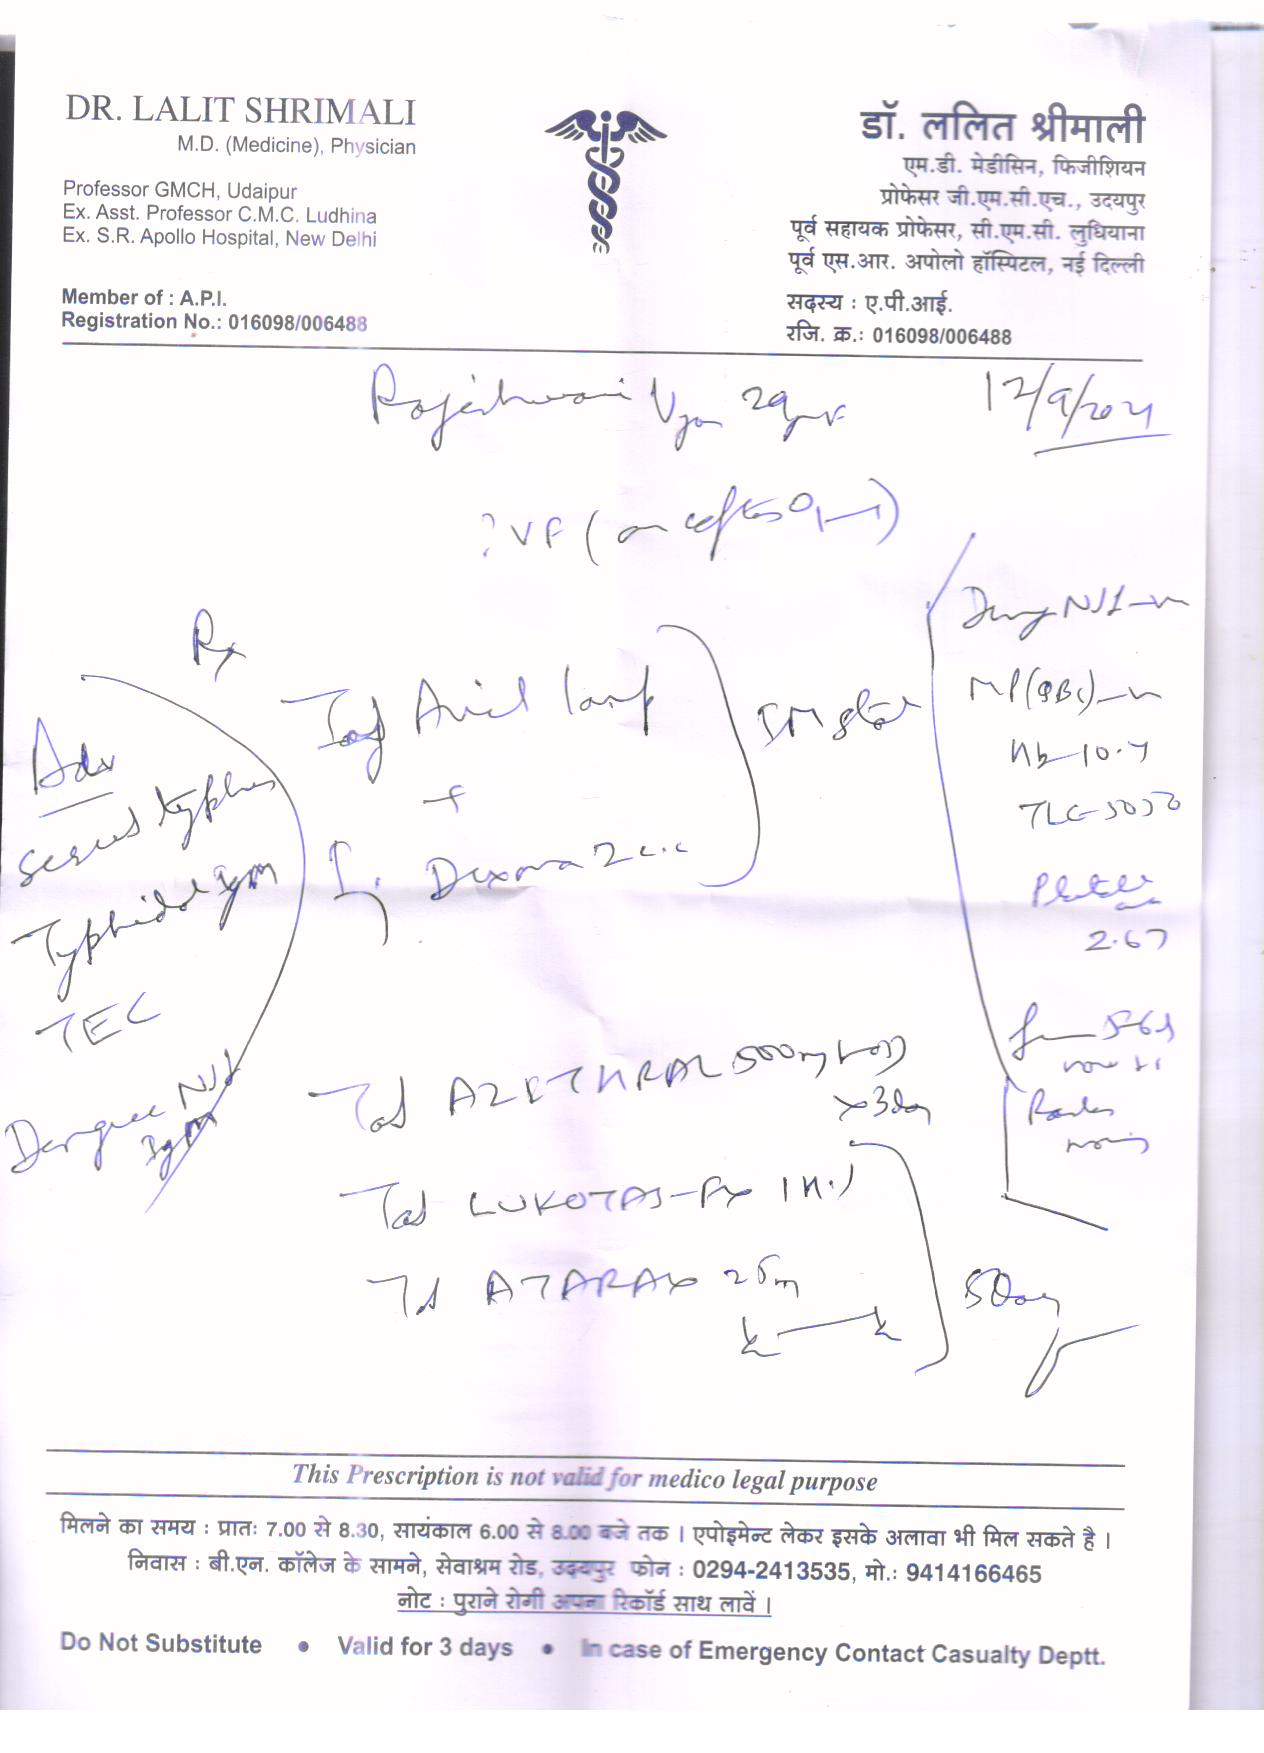 DR. LALIT SHRIMALI
M.D. (Medicine), Physician
Professor GMCH, Udaipur
Ex. Asst. Professor C.M.C. Ludhina
Ex. S.R. Apollo Hospital, New Delhi
Member of : A.P.I.
Registration No.: 016098/006488
डॉ. ललित श्रीमाली
एम.डी. मेडीसिन, फिजीशियन
प्रोफेसर जी.एम.सी.एच., उदयपुर
पूर्व सहायक प्रोफेसर, सी.एम.सी. लुधियाना
पूर्व एस.आर. अपोलो हॉस्पिटल, नई दिल्ली
सदस्य : ए.पी.आई.
रजि. क्र.: 016098/006488
Rajeshwari 29
12/9/2021
? VF (on
Rx
Avil 1amp
+
Dexona 2 c.c
IM stat
NS1
MP(QBC)
Hb-10.7
TLC-5050
Platelet
2.67
Adv
Scrub typhus
Typhidot IgM
TEC
Dengue NS1
IgM
Tab AZITHRAL 500mg
x 3day
Tab LUKOTAS-Fx
Tab ATARAX 25m
5Day
This Prescription is not valid for medico legal purpose
मिलने का समय : प्रातः 7.00 से 8.30, सायंकाल 6.00 से 8.00 बजे तक । एपोइमेन्ट लेकर इसके अलावा भी मिल सकते है ।
निवास : बी.एन. कॉलेज के सामने, सेवाश्रम रोड, उदयपुर फोन : 0294-2413535, मो.: 9414166465
नोट : पुराने रोगी अपना रिकॉर्ड साथ लावें ।
Do Not Substitute • Valid for 3 days • In case of Emergency Contact Casualty Deptt.